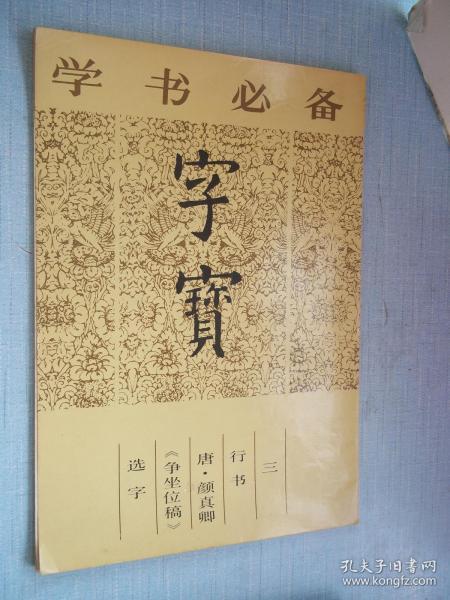 学书必备
字寳
三
行书
唐·颜真卿
《争坐位稿》
选字
孔夫子旧书网
www.kongfz.com